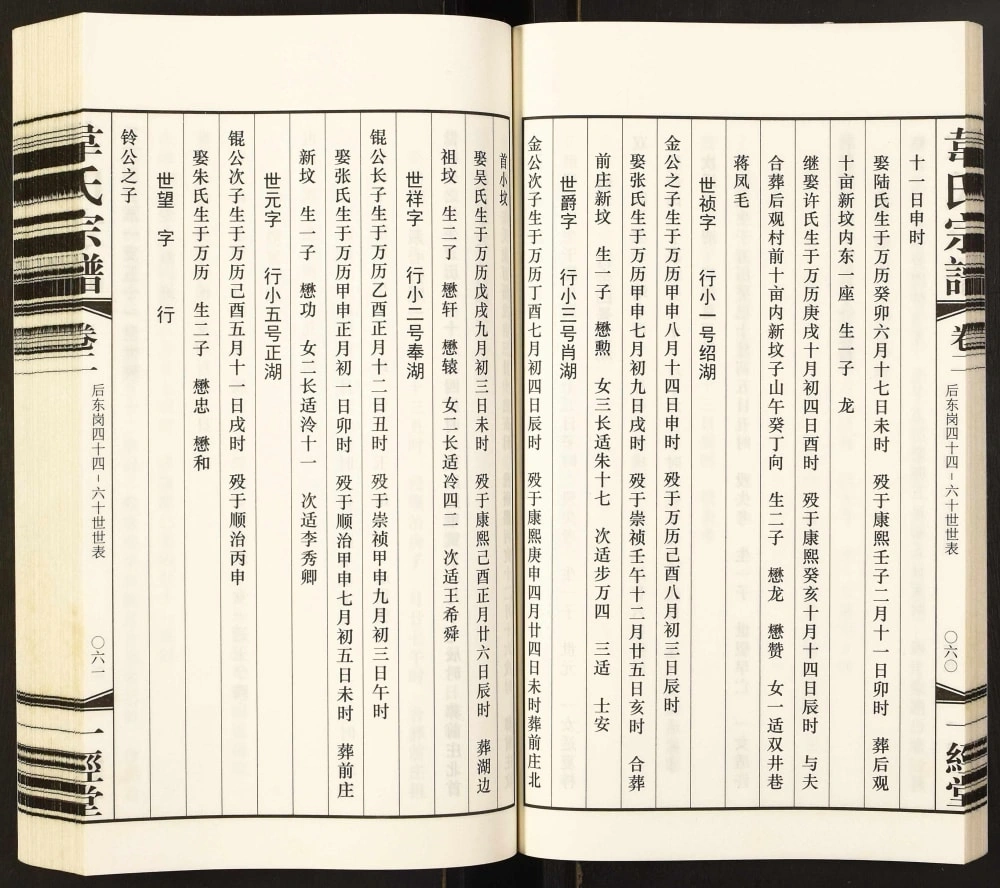 韋氏宗譜
卷二
后东岗四十四－六十世世表
〇六〇
一經堂
十一日申时
娶陆氏生于万历癸卯六月十七日未时　殁于康熙壬子二月十一日卯时　葬后观
十亩新坟内东一座　生一子　龙
继娶许氏生于万历庚戌十月初四日酉时　殁于康熙癸亥十月十四日辰时　与夫
合葬后观村前十亩内新坟子山午癸丁向　生二子　懋龙　懋赞　女一适双井巷
蒋凤毛
世祯字　行小一号绍湖
金公之子生于万历甲申八月十四日申时　殁于万历己酉八月初三日辰时
娶张氏生于万历甲申七月初九日戌时　殁于崇祯壬午十二月廿五日亥时　合葬
前庄新坟　生一子　懋勲　女三长适朱十七　次适步万四　三适　士安
世爵字　行小三号肖湖
金公次子生于万历丁酉七月初四日辰时　殁于康熙庚申四月廿四日未时葬前庄北
首小坟
娶吴氏生于万历戊戌九月初三日未时　殁于康熙己酉正月廿六日辰时　葬湖边
祖坟　生二了　懋轩　懋辕　女二长适冷四二　次适王希舜
世祥字　行小二号奉湖
锟公长子生于万历乙酉正月十二日丑时　殁于崇祯甲申九月初三日午时
娶张氏生于万历甲申正月初一日卯时　殁于顺治甲申七月初五日未时　葬前庄
新坟　生一子　懋功　女二长适泠十一　次适李秀卿
世元字　行小五号正湖
锟公次子生于万历己酉五月十一日戌时　殁于顺治丙申
娶朱氏生于万历　生二子　懋忠　懋和
世望　字　行
铃公之子
韋氏宗譜
卷二
后东岗四十四－六十世世表
〇六一
一經堂